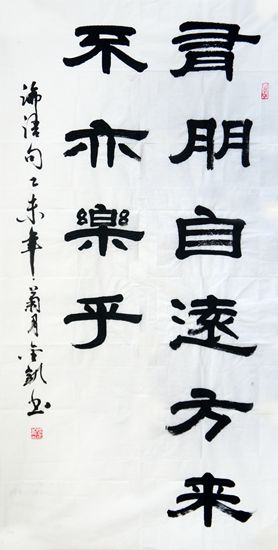 有朋自遠方来
不亦樂乎
論語句乙未年菊月金凱书